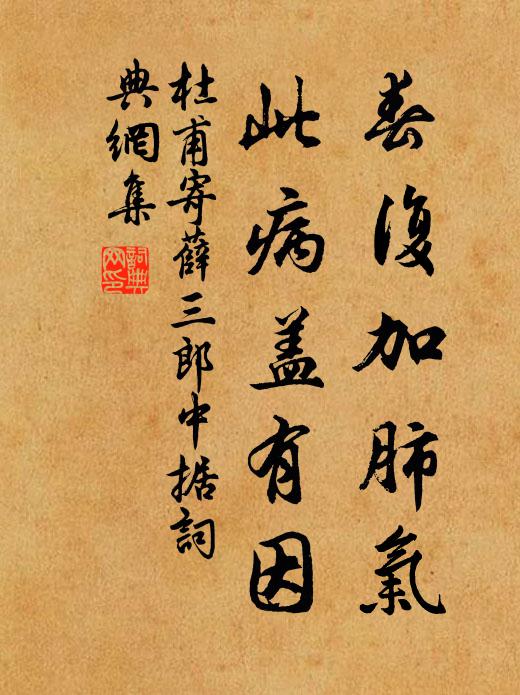 春復加肺氣
此病盖有因
杜甫寄薛三郎中据詞
典網集
詞典
网印